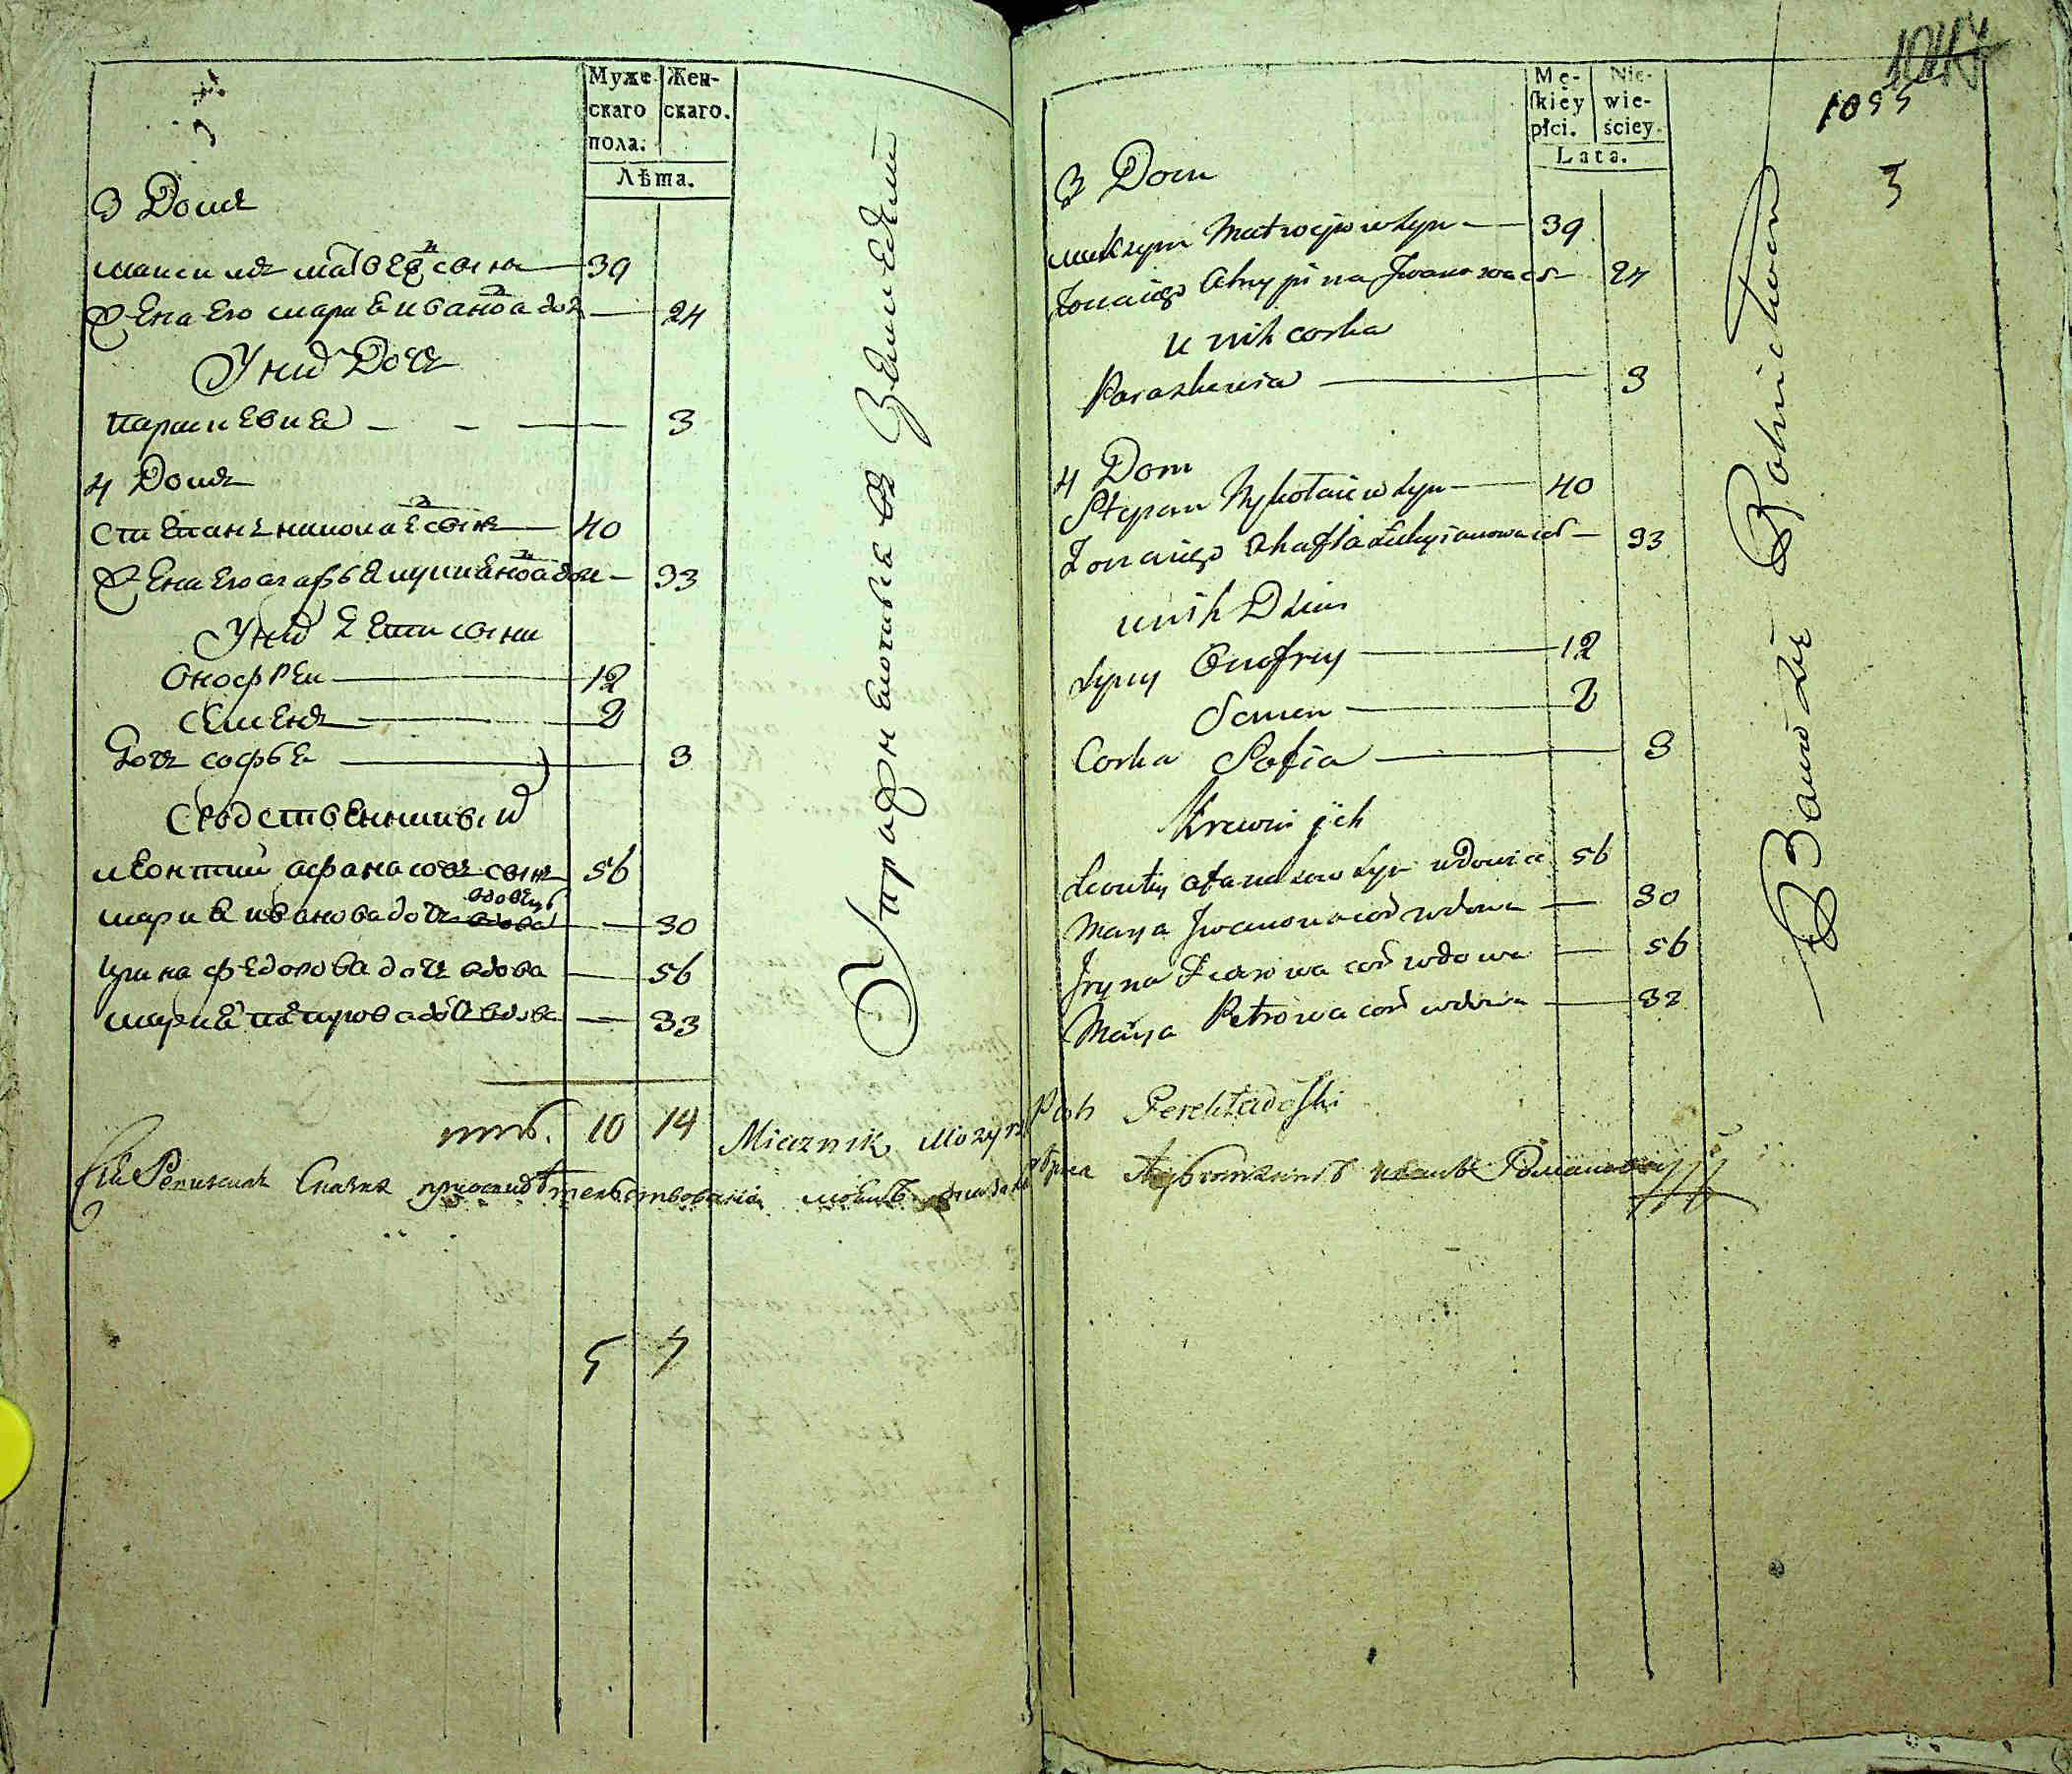 Муже-
скаго
пола.
Жен-
скаго.
Лѣта.
3 Домъ
максимъ матвеевъ сынъ 39
жена его мария иванова дочь 24
У них Дочь
параскевия 3
4 Домъ
степанъ николаевъ сынъ 40
жена его агафья лукиянова дочь 33
У них дети сыны
Онофреи 12
семенъ 2
Дочь софья 3
Сродственники их
леонтий афанасовъ сынъ вдовецъ 56
мария иванова дочь вдова 30
ирина федорова дочь вдова 56
мария петрова дочь вдова 33
10 14
5 7
Упражняютца въ Земледелии
1055
3
Mę-
ſkiéy
płci.
Nie-
wie-
ściey.
Lata.
3 Dom
Maksym Matwejow syn 39
Żona iego Iwanowa 24
u nih corka
Paraskewia 3
4 Dom
Stepan Mykołaiew syn 40
Żona iego Ahafia Łukyianowa 33
u nih Dzieci
Syny Onofrey 12
Semen 2
Corka Sofia 3
Krewni ich
Leontiy Afanasow syn wdowiec 56
Marya Iwanowa cor wdowa 30
Iryna Fedorowa cor wdowa 56
Marya Petrowa cor wdowa 32
Miecznik Mozyrs
Bawią się Rolnictwem